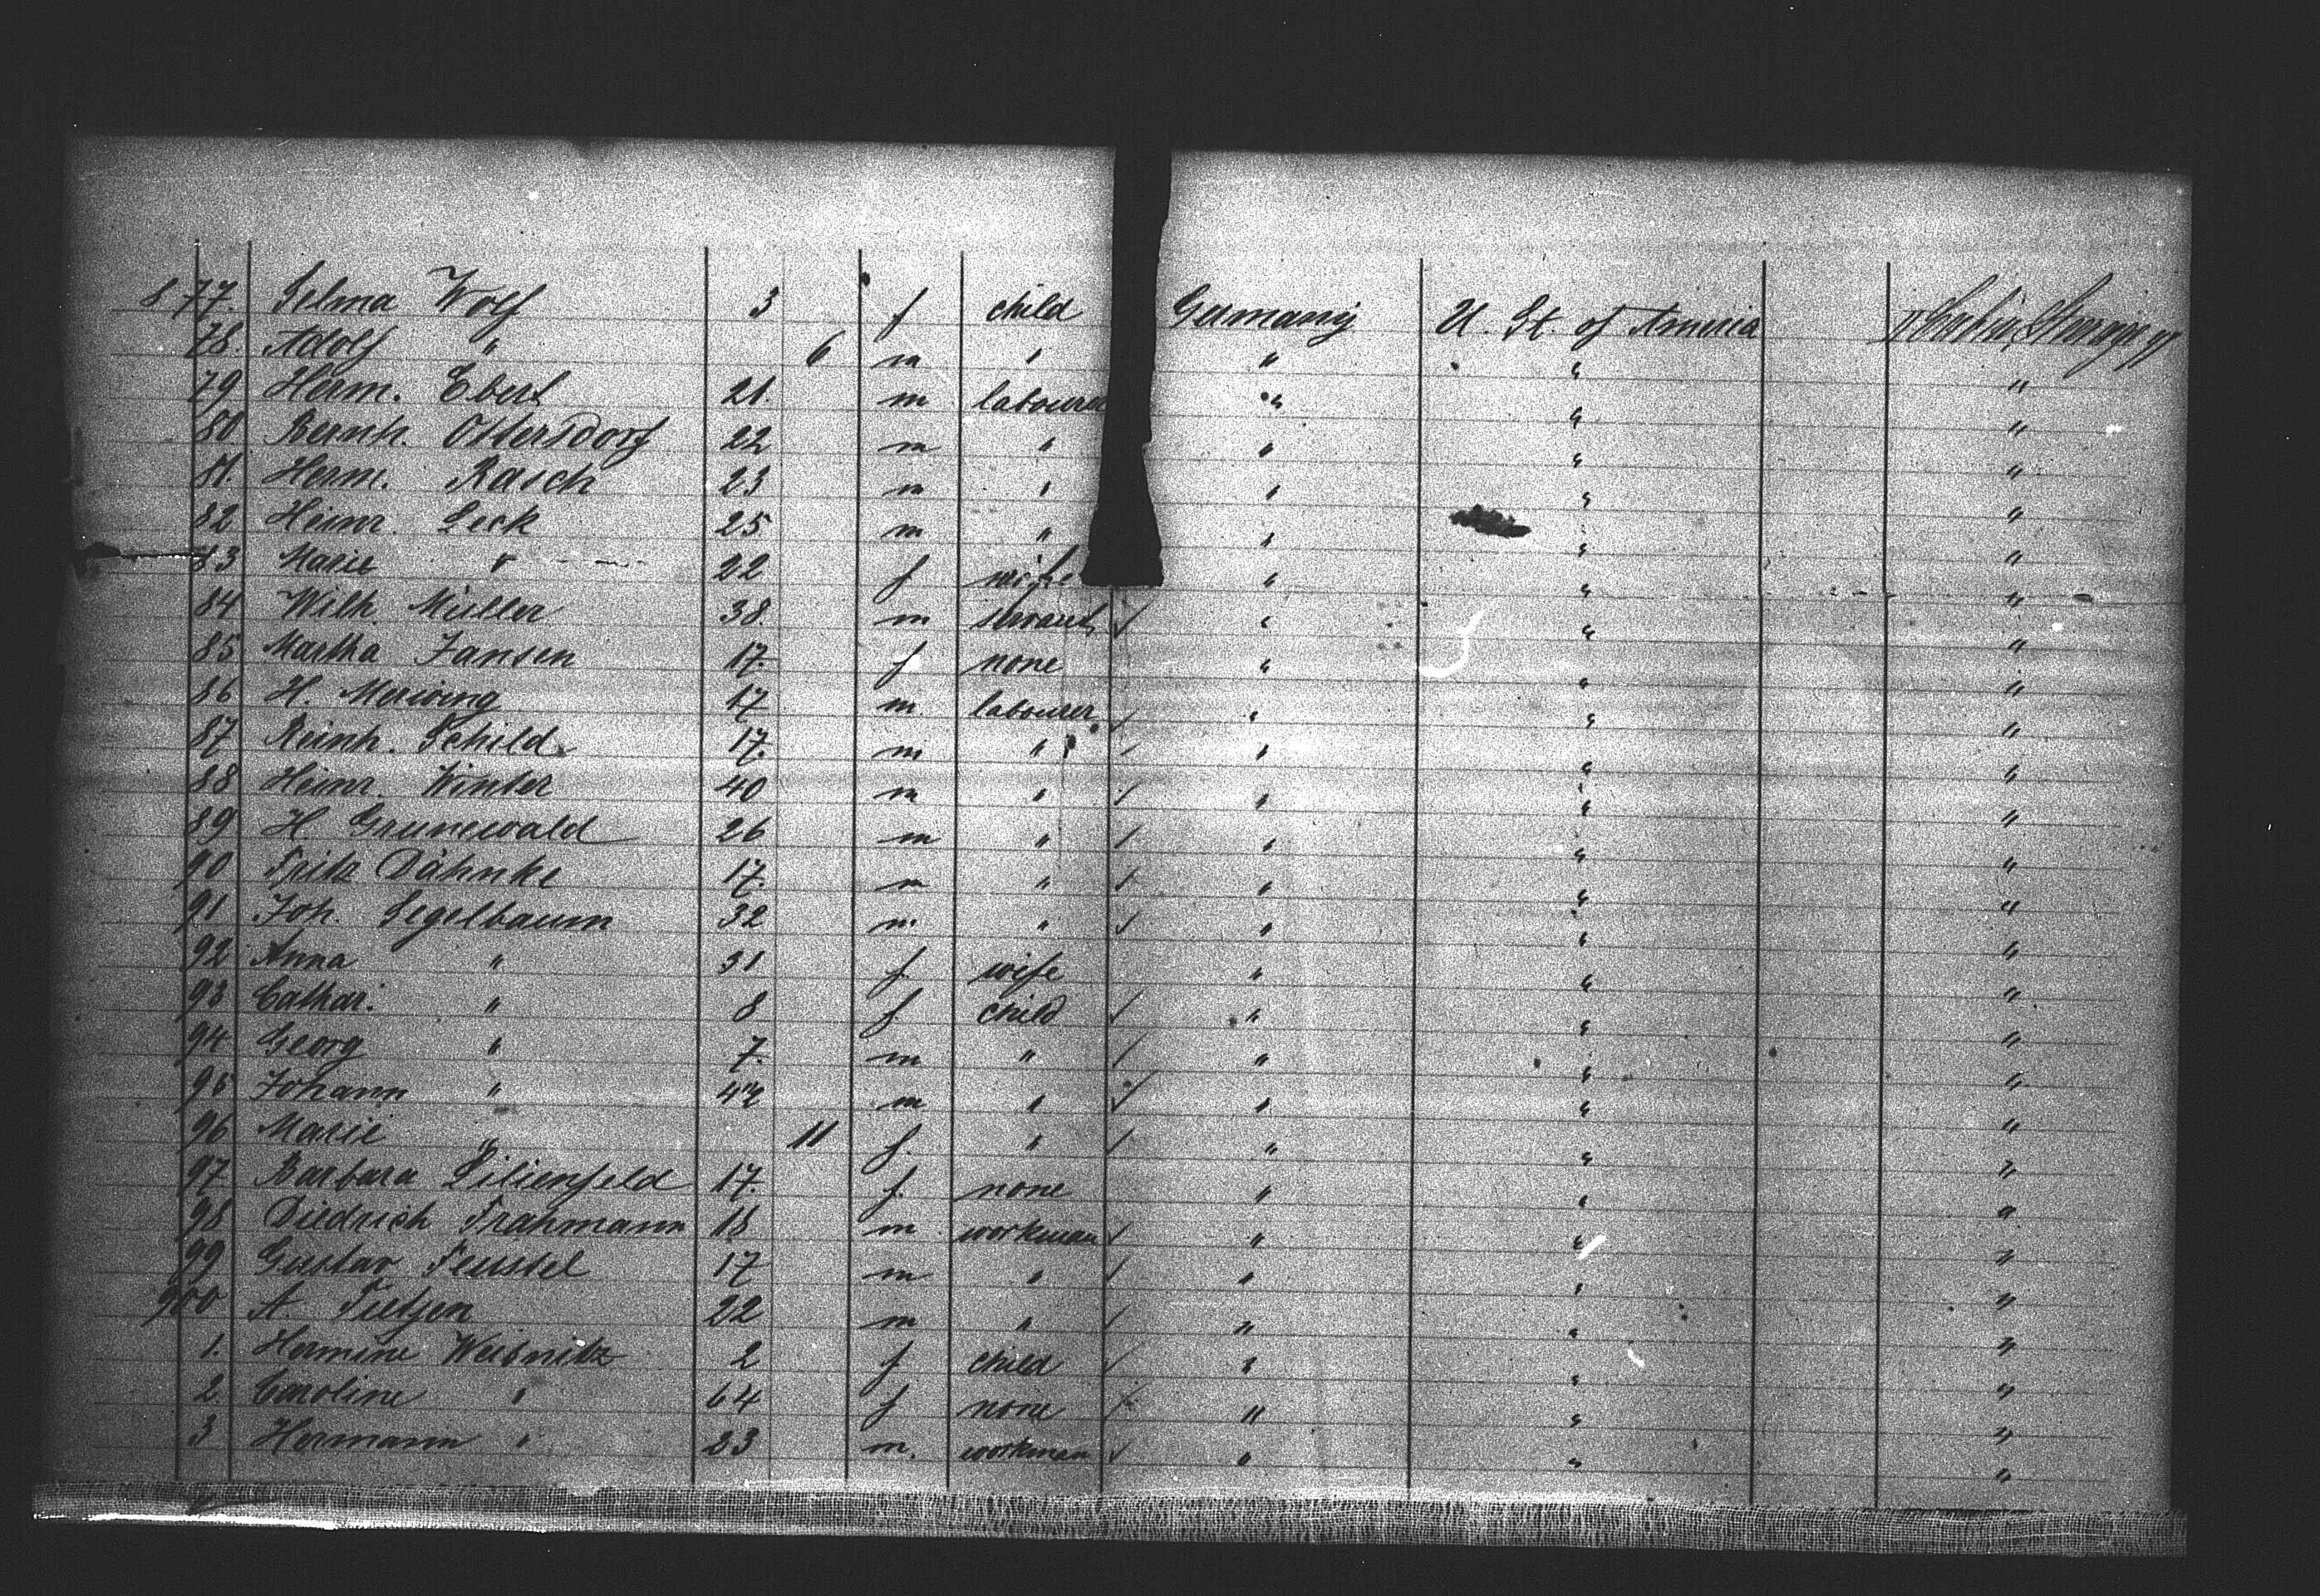 877. Selma Wolf 3 f child Germany U. St. of America
78. Adolf " 6 m " " " "
79 Herm. Ebert 21 m labourer " " "
80 Bernh. Ottersdorf 22 m " " " "
81. Herm. Rasch 23 m " " " "
82 Heinr. Seck 25 m " " " "
83 Marie " 22 f wife " " "
84 Wilh. Müller 38. m servant " " "
85 Martha Jansen 17. f none " " "
86 H. 17 m. labourer " " "
87 Reinh. Schild 17. m " " " "
88 Heinr. Winter 40 m " " " "
89 H Grunewald 26 m " " " "
90 Fritz Dähnke 17. m " " " "
91 Joh. Segelbaum 32 m. " " " "
92 Anna " 31 f. wife " " "
93 Cathar. " 8 f child " " "
94 Georg " 7. m " " " "
95 Johann " m " " " "
96 Marie " 11 f. " " " "
97 Barbara Lilienfeld 17. f. none " " "
98 Diedrich Frahmann 18 m workman " " "
99 Gustav Feustel 17 m " " " "
900 A. Tietjen 22 m " " " "
1. Hermine Weibnitz 2 f child " " "
2. Caroline " 64 f none " " "
3 Hermann " 23 m. workman " " "